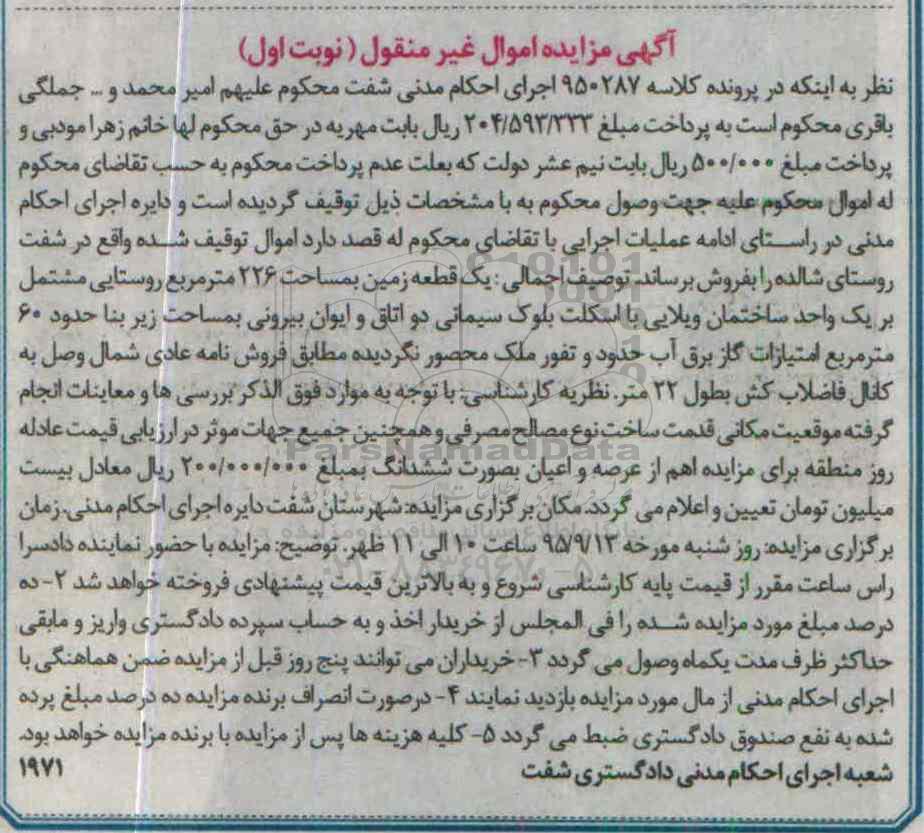 آگهی مزایده اموال غیر منقول (نوبت اول)
نظر به اینکه در پرونده کلاسه ۹۵۰۲۸۷ اجرای احکام مدنی شفت محکوم علیهم امیر محمد و ... جملگی
باقری محکوم است به پرداخت مبلغ ۲۰۴/۵۹۳/۳۳۳ ریال بابت مهریه در حق محکوم لها خانم زهرا مودبی و
پرداخت مبلغ ۵۰۰/۰۰۰ ریال بابت نیم عشر دولت که بعلت عدم پرداخت محکوم به حسب تقاضای محکوم
له اموال محکوم علیه جهت وصول محکوم به با مشخصات ذیل توقیف گردیده است و دایره اجرای احکام
مدنی در راستای ادامه عملیات اجرایی با تقاضای محکوم له قصد دارد اموال توقیف شده واقع در شفت
روستای شالده را بفروش برساند. توصیف اجمالی : یک قطعه زمین بمساحت ۲۲۶ مترمربع روستایی مشتمل
بر یک واحد ساختمان ویلایی با اسکلت بلوک سیمانی دو اتاق و ایوان بیرونی بمساحت زیر بنا حدود ۶۰
مترمربع امتیازات گاز برق آب حدود و ثغور ملک محصور نگردیده مطابق فروش نامه عادی شمال وصل به
کانال فاضلاب کش بطول ۲۲ متر. نظریه کارشناسی: با توجه به موارد فوق الذکر بررسی ها و معاینات انجام
گرفته موقعیت مکانی قدمت ساخت نوع مصالح مصرفی و همچنین جمیع جهات موثر در ارزیابی قیمت عادله
روز منطقه برای مزایده اهم از عرصه و اعیان بصورت ششدانگ بمبلغ ۲۰۰/۰۰۰/۰۰۰ ریال معادل بیست
میلیون تومان تعیین و اعلام می گردد. مکان برگزاری مزایده: شهرستان شفت دایره اجرای احکام مدنی. زمان
برگزاری مزایده: روز شنبه مورخه ۹۵/۹/۱۳ ساعت ۱۰ الی ۱۱ ظهر. توضیح: مزایده با حضور نماینده دادسرا
راس ساعت مقرر از قیمت پایه کارشناسی شروع و به بالاترین قیمت پیشنهادی فروخته خواهد شد ۲- ده
درصد مبلغ مورد مزایده شده را فی المجلس از خریدار اخذ و به حساب سپرده دادگستری واریز و مابقی
حداکثر ظرف مدت یکماه وصول می گردد ۳- خریداران می توانند پنج روز قبل از مزایده ضمن هماهنگی با
اجرای احکام مدنی از مال مورد مزایده بازدید نمایند ۴- درصورت انصراف برنده مزایده ده درصد مبلغ پرده
شده به نفع صندوق دادگستری ضبط می گردد ۵- کلیه هزینه ها پس از مزایده با برنده مزایده خواهد بود.
شعبه اجرای احکام مدنی دادگستری شفت ۱۹۷۱
ParsNamadData